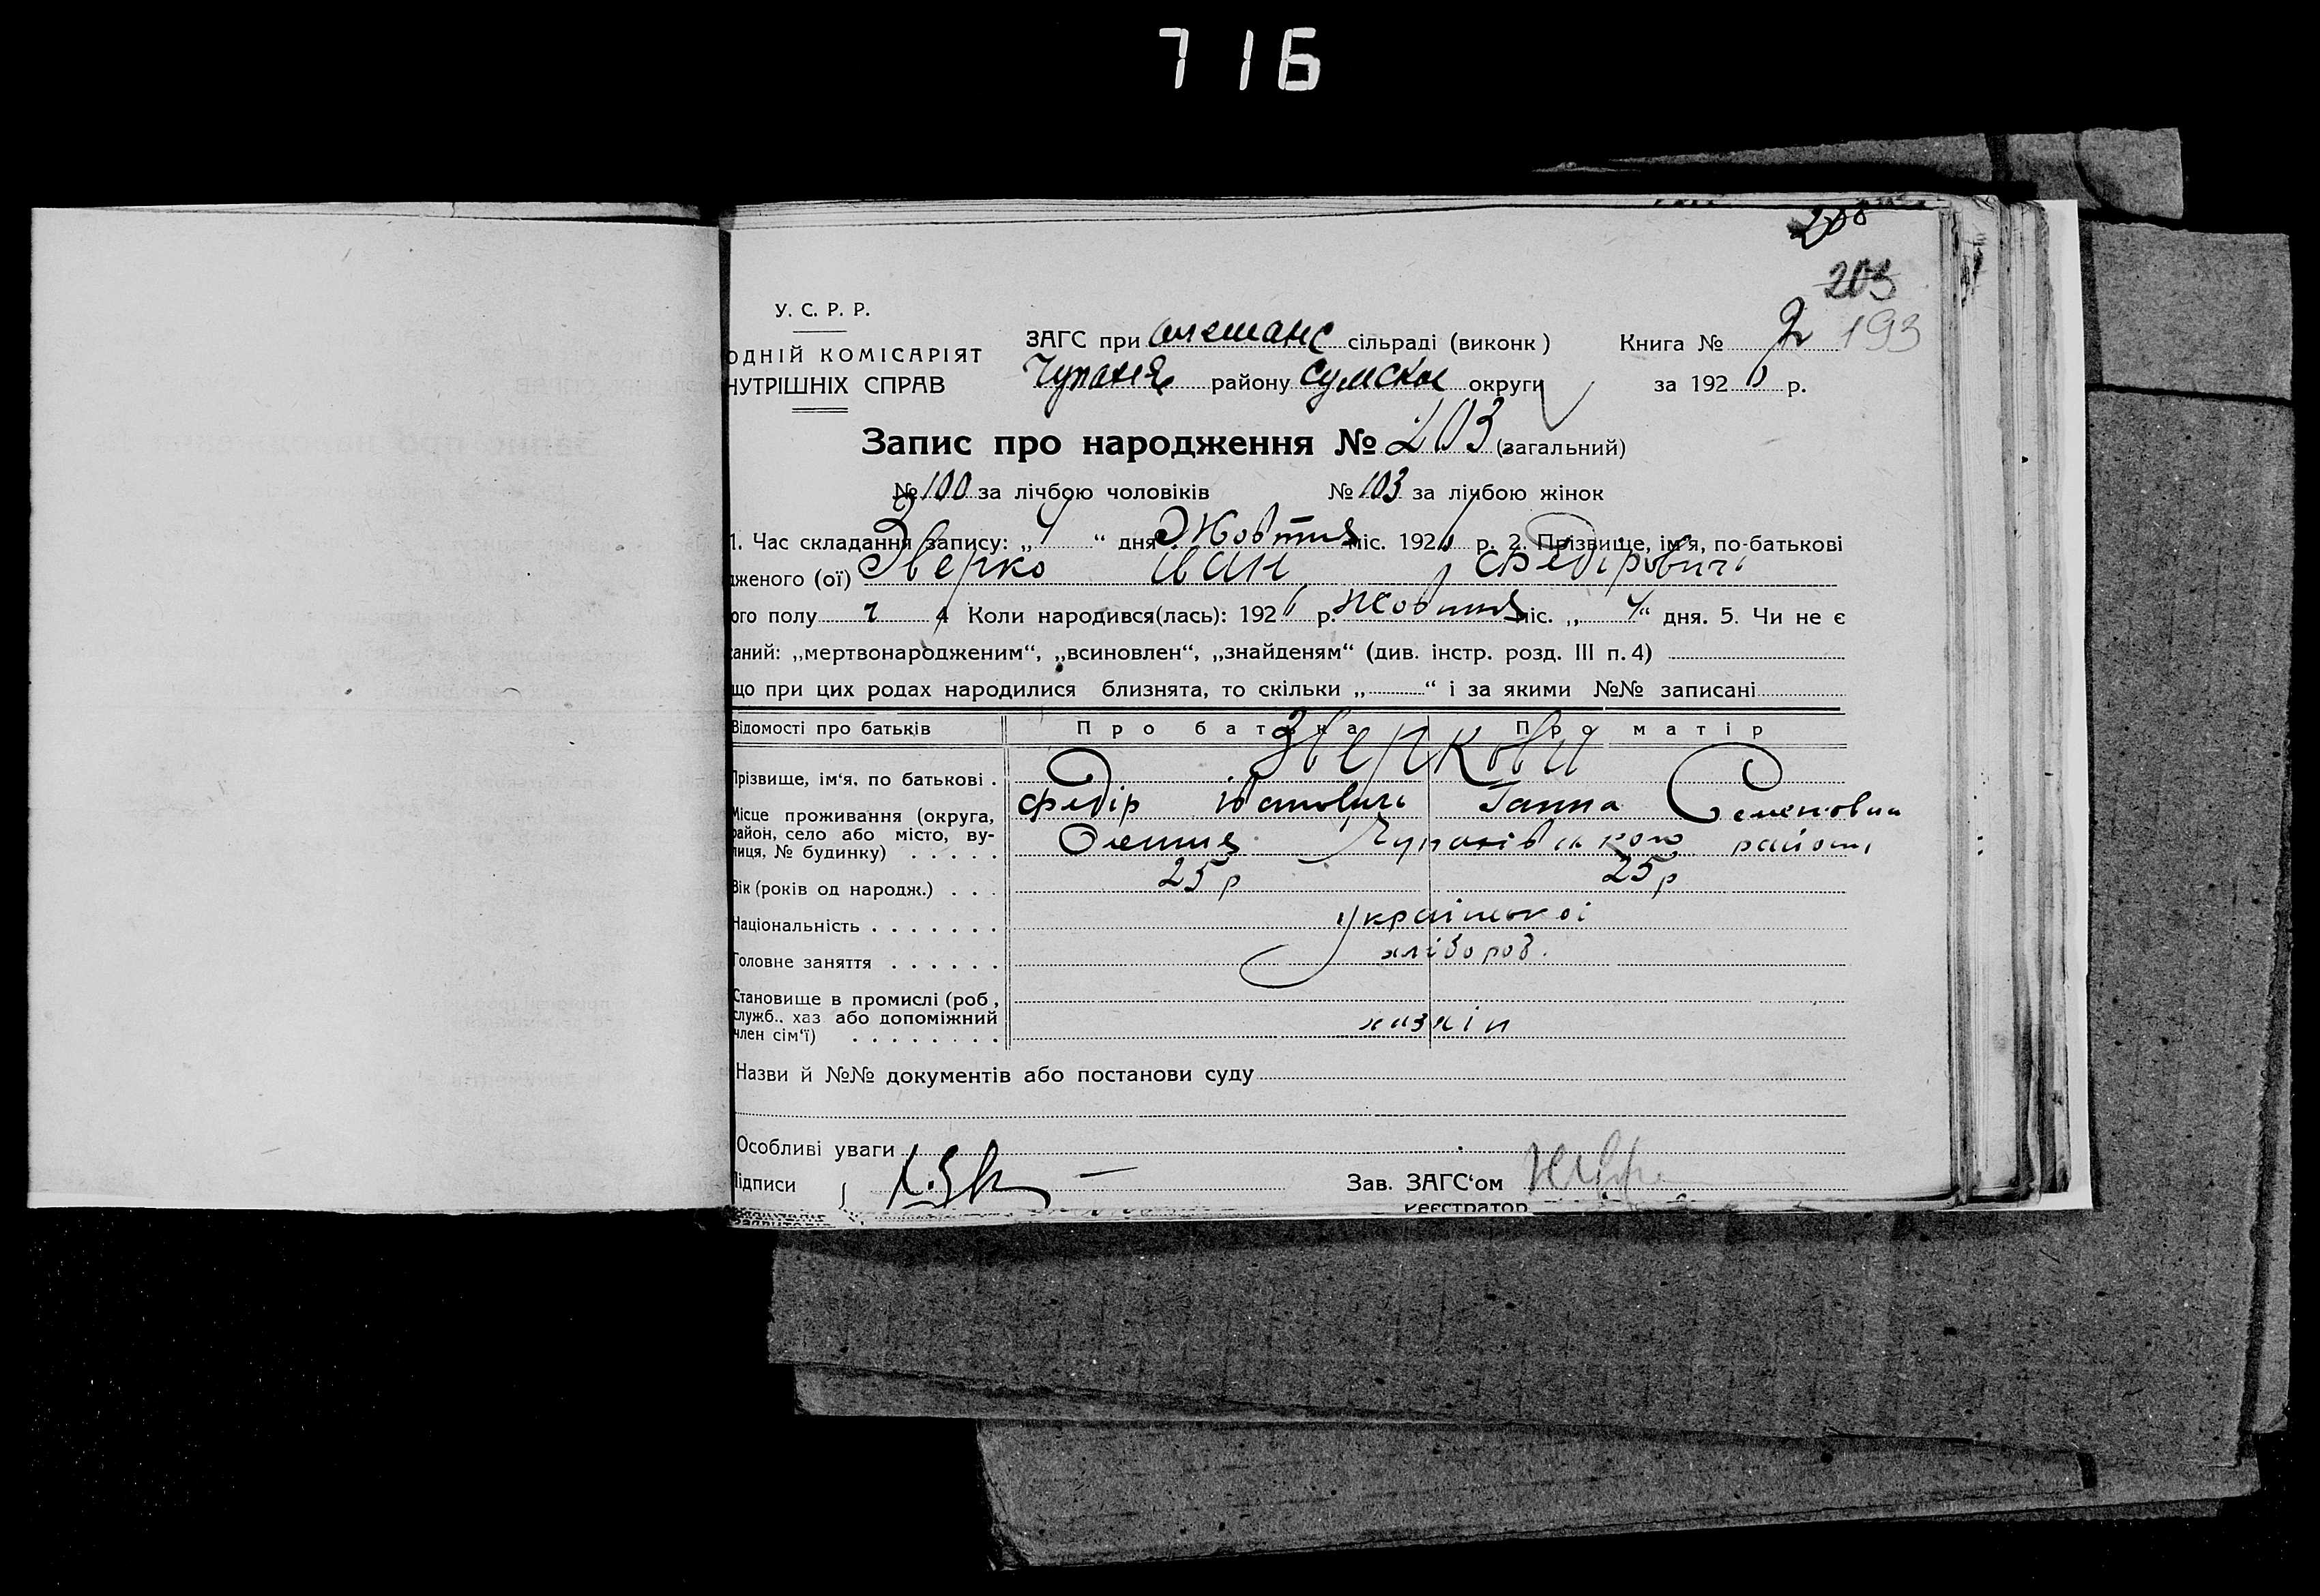 716
208
203
193
У. С. Р. Р.
ОДНІЙ КОМІСАРІЯТ
НУТРІШНІХ СПРАВ
ЗАГС при Олешанс сільраді (виконк)
району Сумської округи
Книга № 2
за 1926 р.
Запис про народження № 203 (загальний)
№ 100 за лічбою чоловіків № 103 за лічбою жінок
1. Час складання запису: „ 4 “ дня Жовтня міс. 1926 р. 2. Прізвище, ім'я, по-батькові
дженого (ої) Зверко Іван Федірович
ого полу ч 4 Коли народився(лась): 1926 р. Жовтня міс. „ 4 “ дня. 5. Чи не є
каний: „мертвонародженим“, „всиновлен“, „знайденям“ (див. інстр. розд. III п. 4)
що при цих родах народилися близнята, то скільки „ “ і за якими №№ записані
Відомості про батьків Про батька Про матір
Зверкови
Прізвище, ім'я, по батькові . Федір Іванович Ганна Семеновна
Місце проживання (округа,
район, село або місто, ву-
лиця, № будинку) . . . . . Олешня Чупахівського району
Вік (років од народж.) . . . 25 р 25 р
Національність . . . . . . . української
Головне заняття . . . . . . хлібороб.
Становище в промислі (роб,
служб.. хаз або допоміжний
член сім'ї) . . . . . . . . хазяін
Назви й №№ документів або постанови суду
Особливі уваги
ідписи
Зав. ЗАГС'ом
Реєстратор